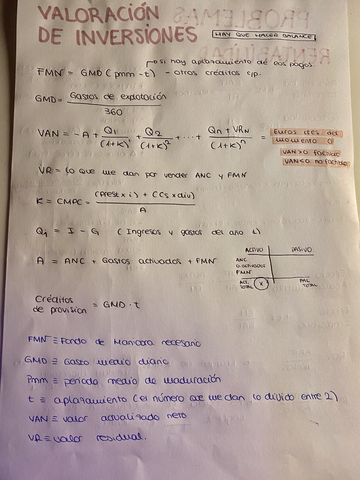 VALORACIÓN
DE INVERSIONES (HAY QUE HACER BALANCE)
si hay aplazamiento de los pagos
FMN = GMD (pmm - t) - otros créditos c/p.
GMD = Gastos de explotación / 360
VAN = -A + Q1/(1+K) + Q2/(1+K)² + ... + Qn + VRN/(1+K)ⁿ = Euros des del momento 0
VAN>0 factible
VAN<0 no factible
VR = lo que me dan por vender ANC y FMN
K = CMPC = (Prest x i) + (CCs x div) / A
Qi = I - G (Ingresos y gastos del año i)
A = ANC + Gastos activados + FMN
ACTIVO PASIVO
ANC
G. ACTIVADOS
FMN
ACT. TOTAL PAS. TOTAL
Créditos de provisión = GMD · t
FMN ≡ Fondo de Maniobra necesario
GMD ≡ Gasto medio diario
Pmm ≡ periodo medio de maduración
t ≡ aplazamiento (el número que me dan lo divido entre 2)
VAN ≡ valor actualizado neto
VR ≡ valor residual.